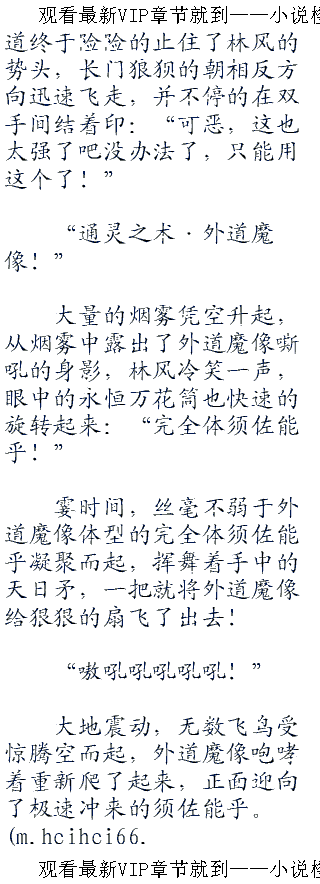 观看最新VIP章节就到——小说检
道终于险险的止住了林风的
势头，长门狼狈的朝相反方
向迅速飞走，并不停的在双
手间结着印：“可恶，这也
太强了吧没办法了，只能用
这个了！”
“通灵之术·外道魔
像！”
大量的烟雾凭空升起，
从烟雾中露出了外道魔像嘶
吼的身影，林风冷笑一声，
眼中的永恒万花筒也快速的
旋转起来：“完全体须佐能
乎！”
霎时间，丝毫不弱于外
道魔像体型的完全体须佐能
乎凝聚而起，挥舞着手中的
天日矛，一把就将外道魔像
给狠狠的扇飞了出去！
“嗷吼吼吼吼吼！”
大地震动，无数飞鸟受
惊腾空而起，外道魔像咆哮
着重新爬了起来，正面迎向
了极速冲来的须佐能乎。
(m.hcihci66.
观看最新VIP章节就到——小说检